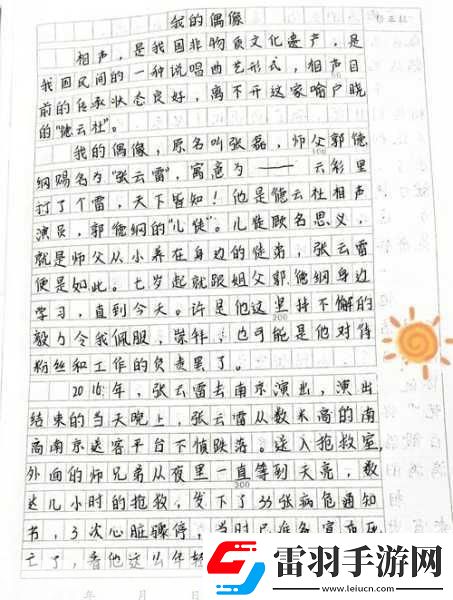 我的偶像
相声，是我国非物质文化遗产，是
我国民间的一种说唱曲艺形式，相声目
前的传承状态良好，离不开这家喻户晓
的“德云社”。
我的偶像，原名叫张磊，师父郭德
纲赐名为“张云雷”，寓意为——云彩里
打了个雷，天下皆知！他是德云社相声
演员，郭德纲的“儿徒”。儿徒顾名思义，
就是师父从小养在身边的徒弟，张云雷
便是如此。七岁起就跟姐父郭德纲身边
学习，直到今天。许是他这坚持不懈的
200
毅力令我佩服，崇拜，也可能是他对待
粉丝和工作的负责罢了。
2016年，张云雷去南京演出，演出
结束的当天晚上，张云雷从数米高的南
南京送客平台下偾跌落。送入抢救室，
外面的师兄弟从夜里一直等到天亮，数
300
达几小时的抢救，发下了33张病危通知
书，3次心脏骤停，当时已准备宣布死
亡了，看他这么年轻
年 月 日
雷羽手游网
www.leiucn.com